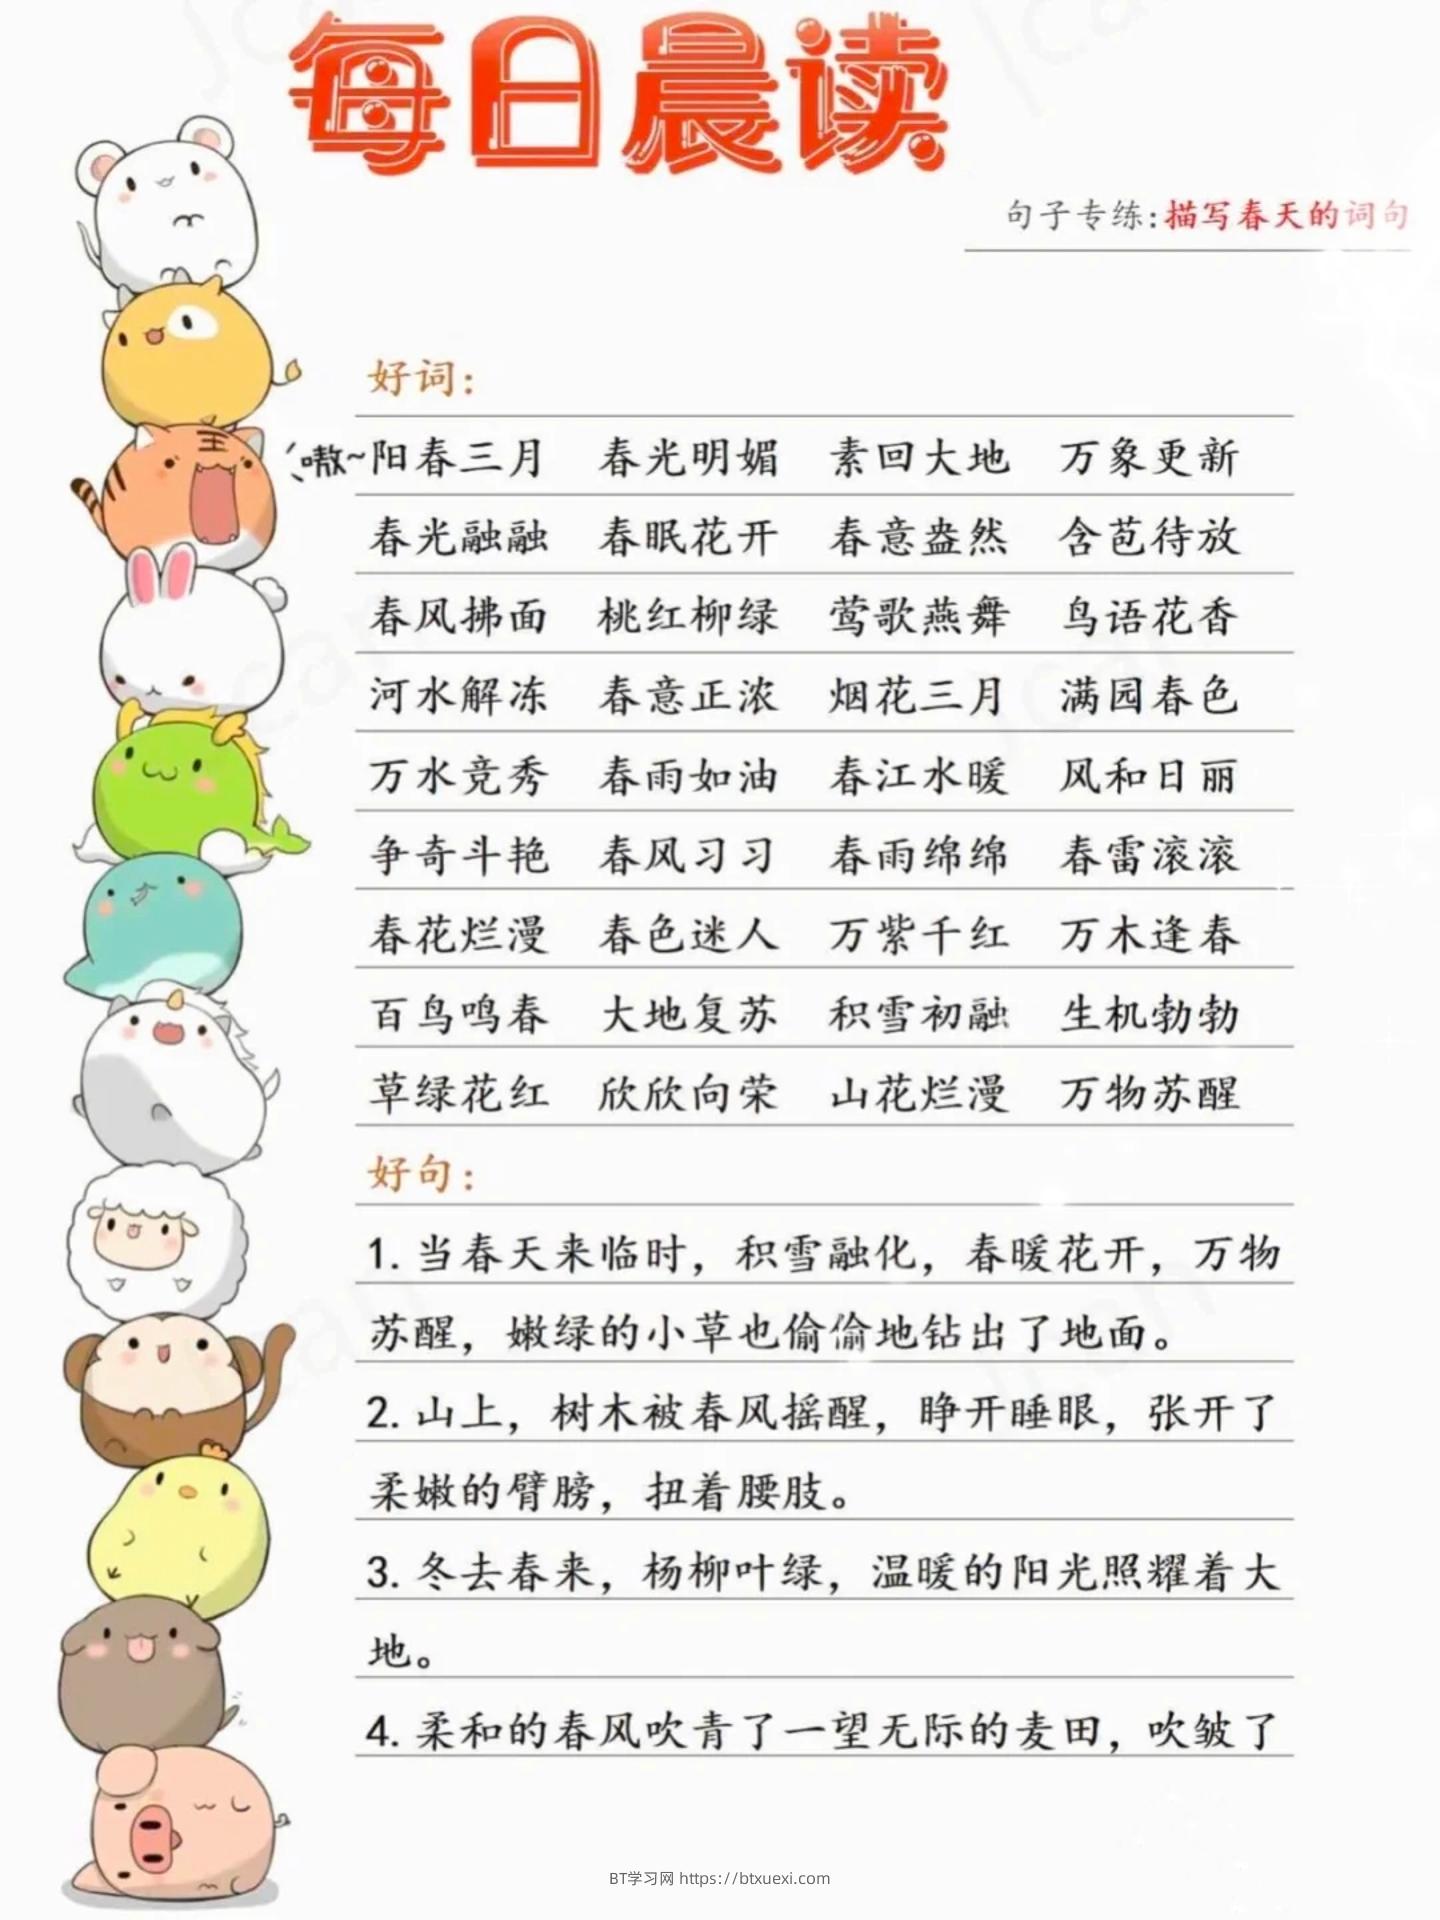 每日晨读
句子专练:描写春天的词句
好词：
嗷~阳春三月 春光明媚 素回大地 万象更新
春光融融 春眠花开 春意盎然 含苞待放
春风拂面 桃红柳绿 莺歌燕舞 鸟语花香
河水解冻 春意正浓 烟花三月 满园春色
万水竞秀 春雨如油 春江水暖 风和日丽
争奇斗艳 春风习习 春雨绵绵 春雷滚滚
春花烂漫 春色迷人 万紫千红 万木逢春
百鸟鸣春 大地复苏 积雪初融 生机勃勃
草绿花红 欣欣向荣 山花烂漫 万物苏醒
好句：
1. 当春天来临时，积雪融化，春暖花开，万物
苏醒，嫩绿的小草也偷偷地钻出了地面。
2. 山上，树木被春风摇醒，睁开睡眼，张开了
柔嫩的臂膀，扭着腰肢。
3. 冬去春来，杨柳叶绿，温暖的阳光照耀着大
地。
4. 柔和的春风吹青了一望无际的麦田，吹皱了
BT学习网 https://btxuexi.com